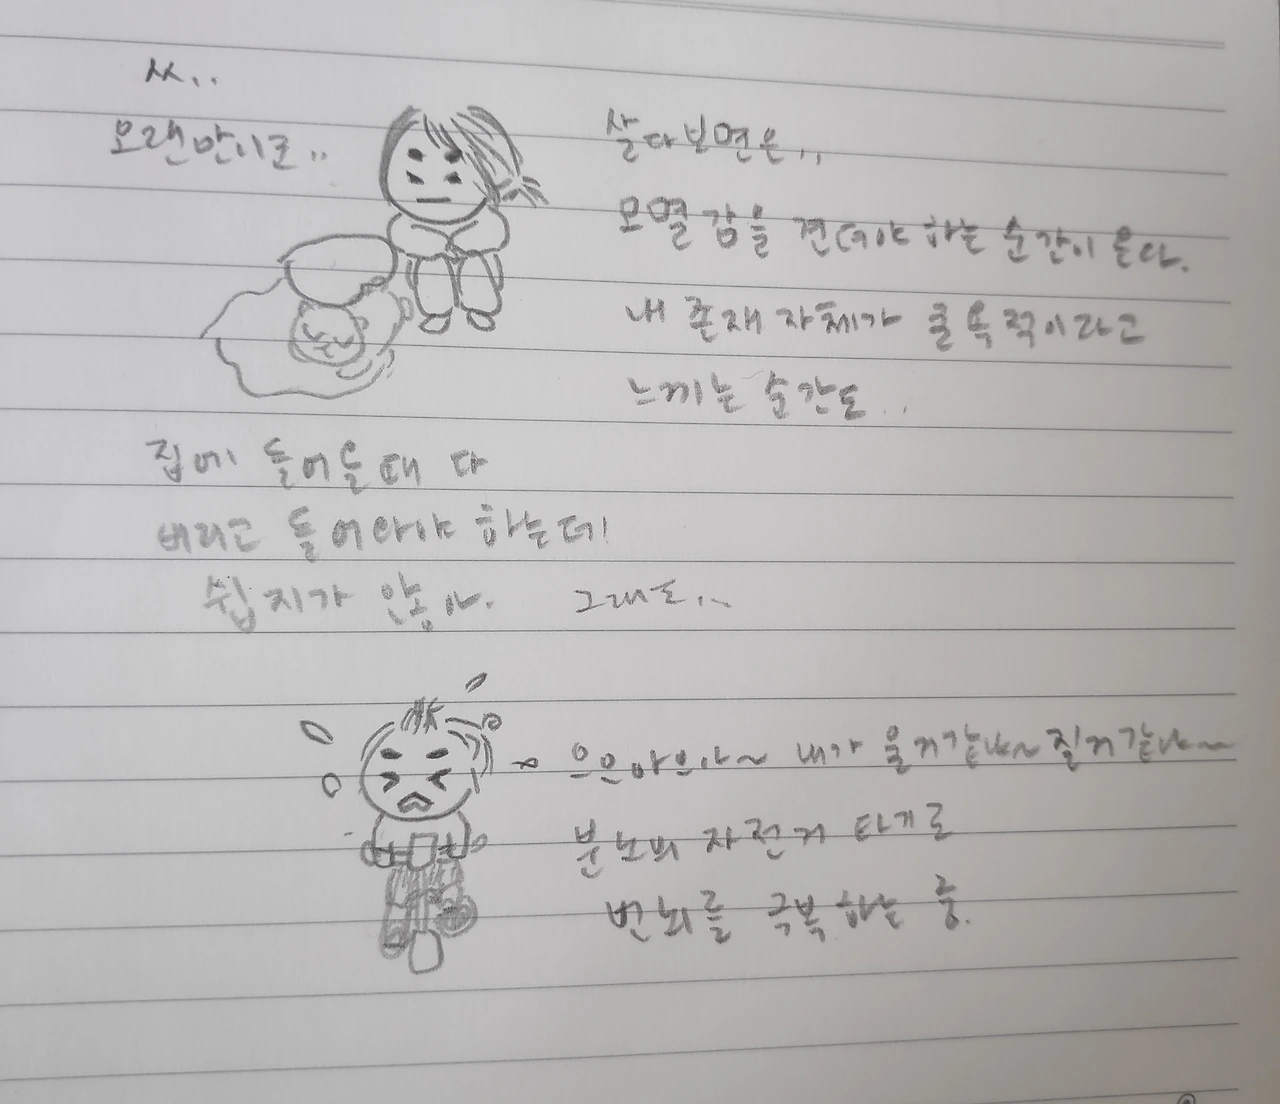 ㅆ..
오랜만이로..
살다보면은..
모멸감을 견뎌야 하는 순간이 온다.
내 존재 자체가 굴욕적이라고
느끼는 순간도..
집에 들어올때 다
버리고 들어와야 하는데!
쉽지가 않아. 그래도...
으으아으아~ 내가 울거같냐~ 질거같냐~
분노의 자전거 타기로
번뇌를 극복하는 중.